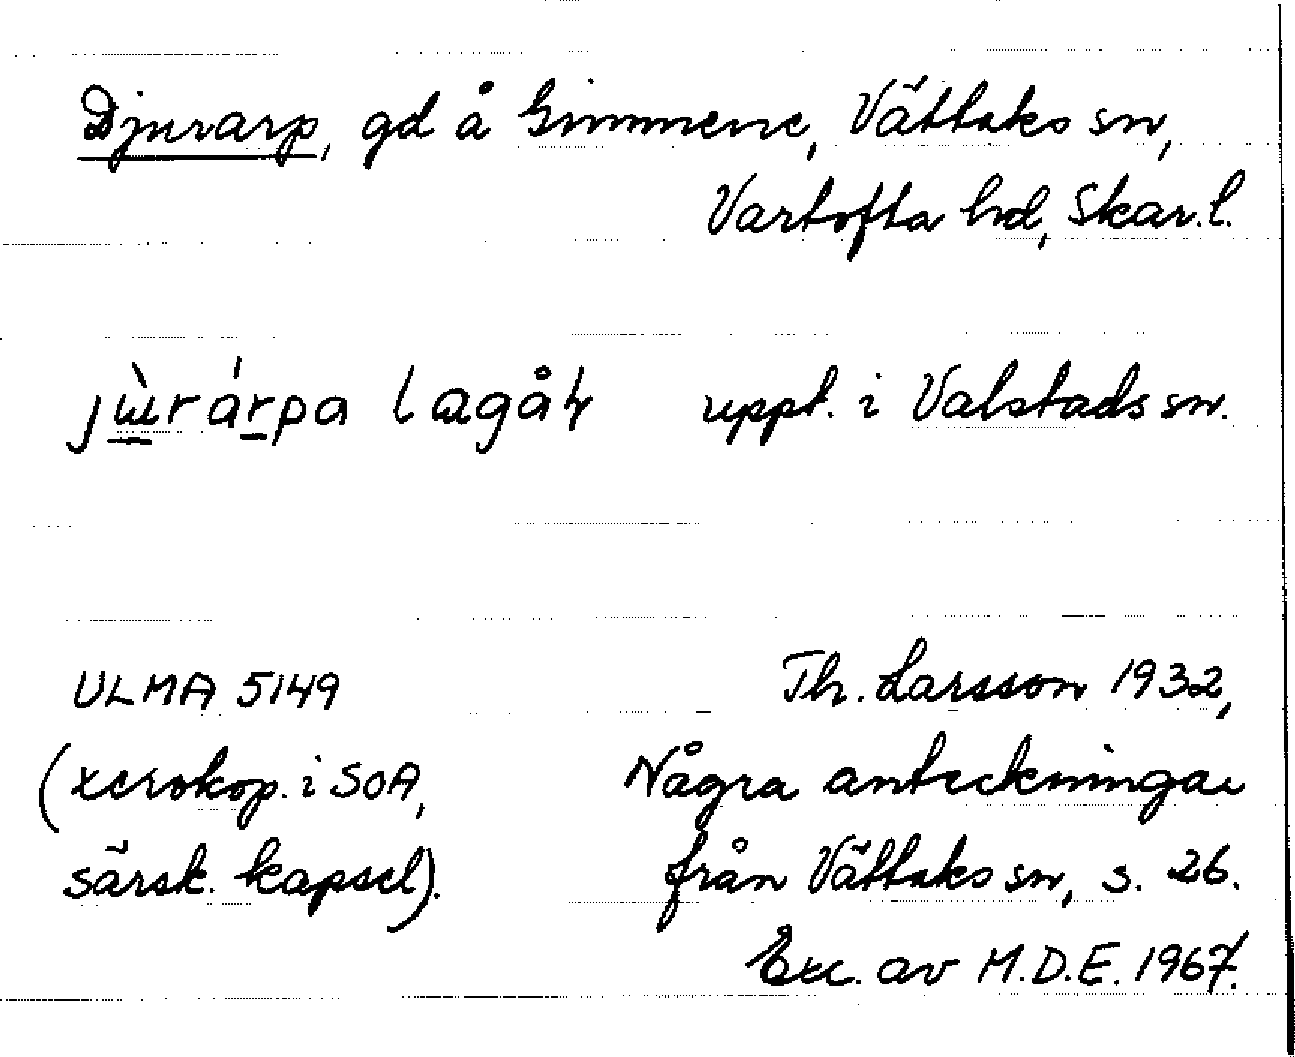 Djurarp, gd å Gimmene, Vättaks sn,
Vartofta hd, Skar.l.
jɯ̀rárpa lagåɫ uppt. i Valstads sn.
ULMA 5149
(xerokop. i SOA,
särsk. kapsel).
Th. Larsson 1932,
Några anteckningar
från Vättaks sn, s. 26.
Exc. av M.D.E. 1967.